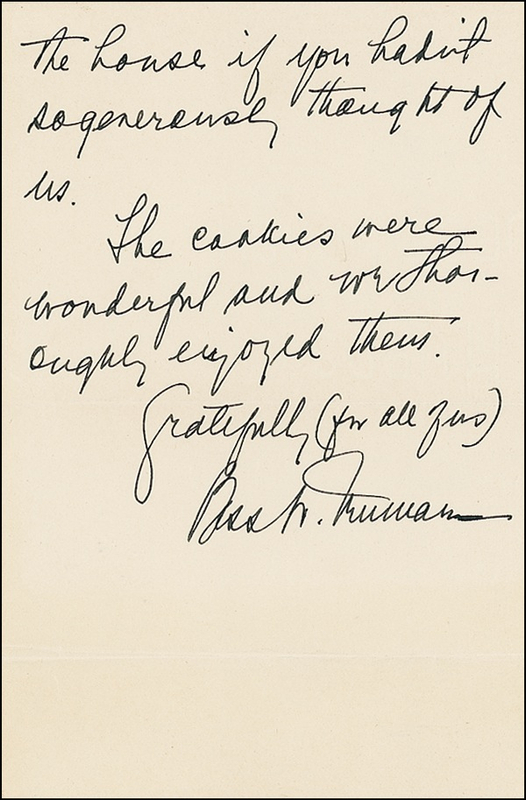 the house if you hadn't
so generously thought of
us.
The cookies were
wonderful and we thor-
oughly enjoyed them.
Gratefully (for all of us)
Bess W. Truman